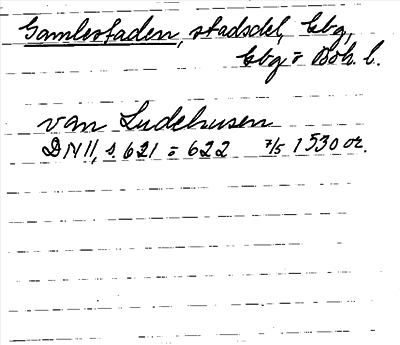 Gamlestaden, stadsdel, Gbg,
Gbg o Boh. l.
van Ludehusen
DN 11, s. 621 - 622 7/5 1530 or.